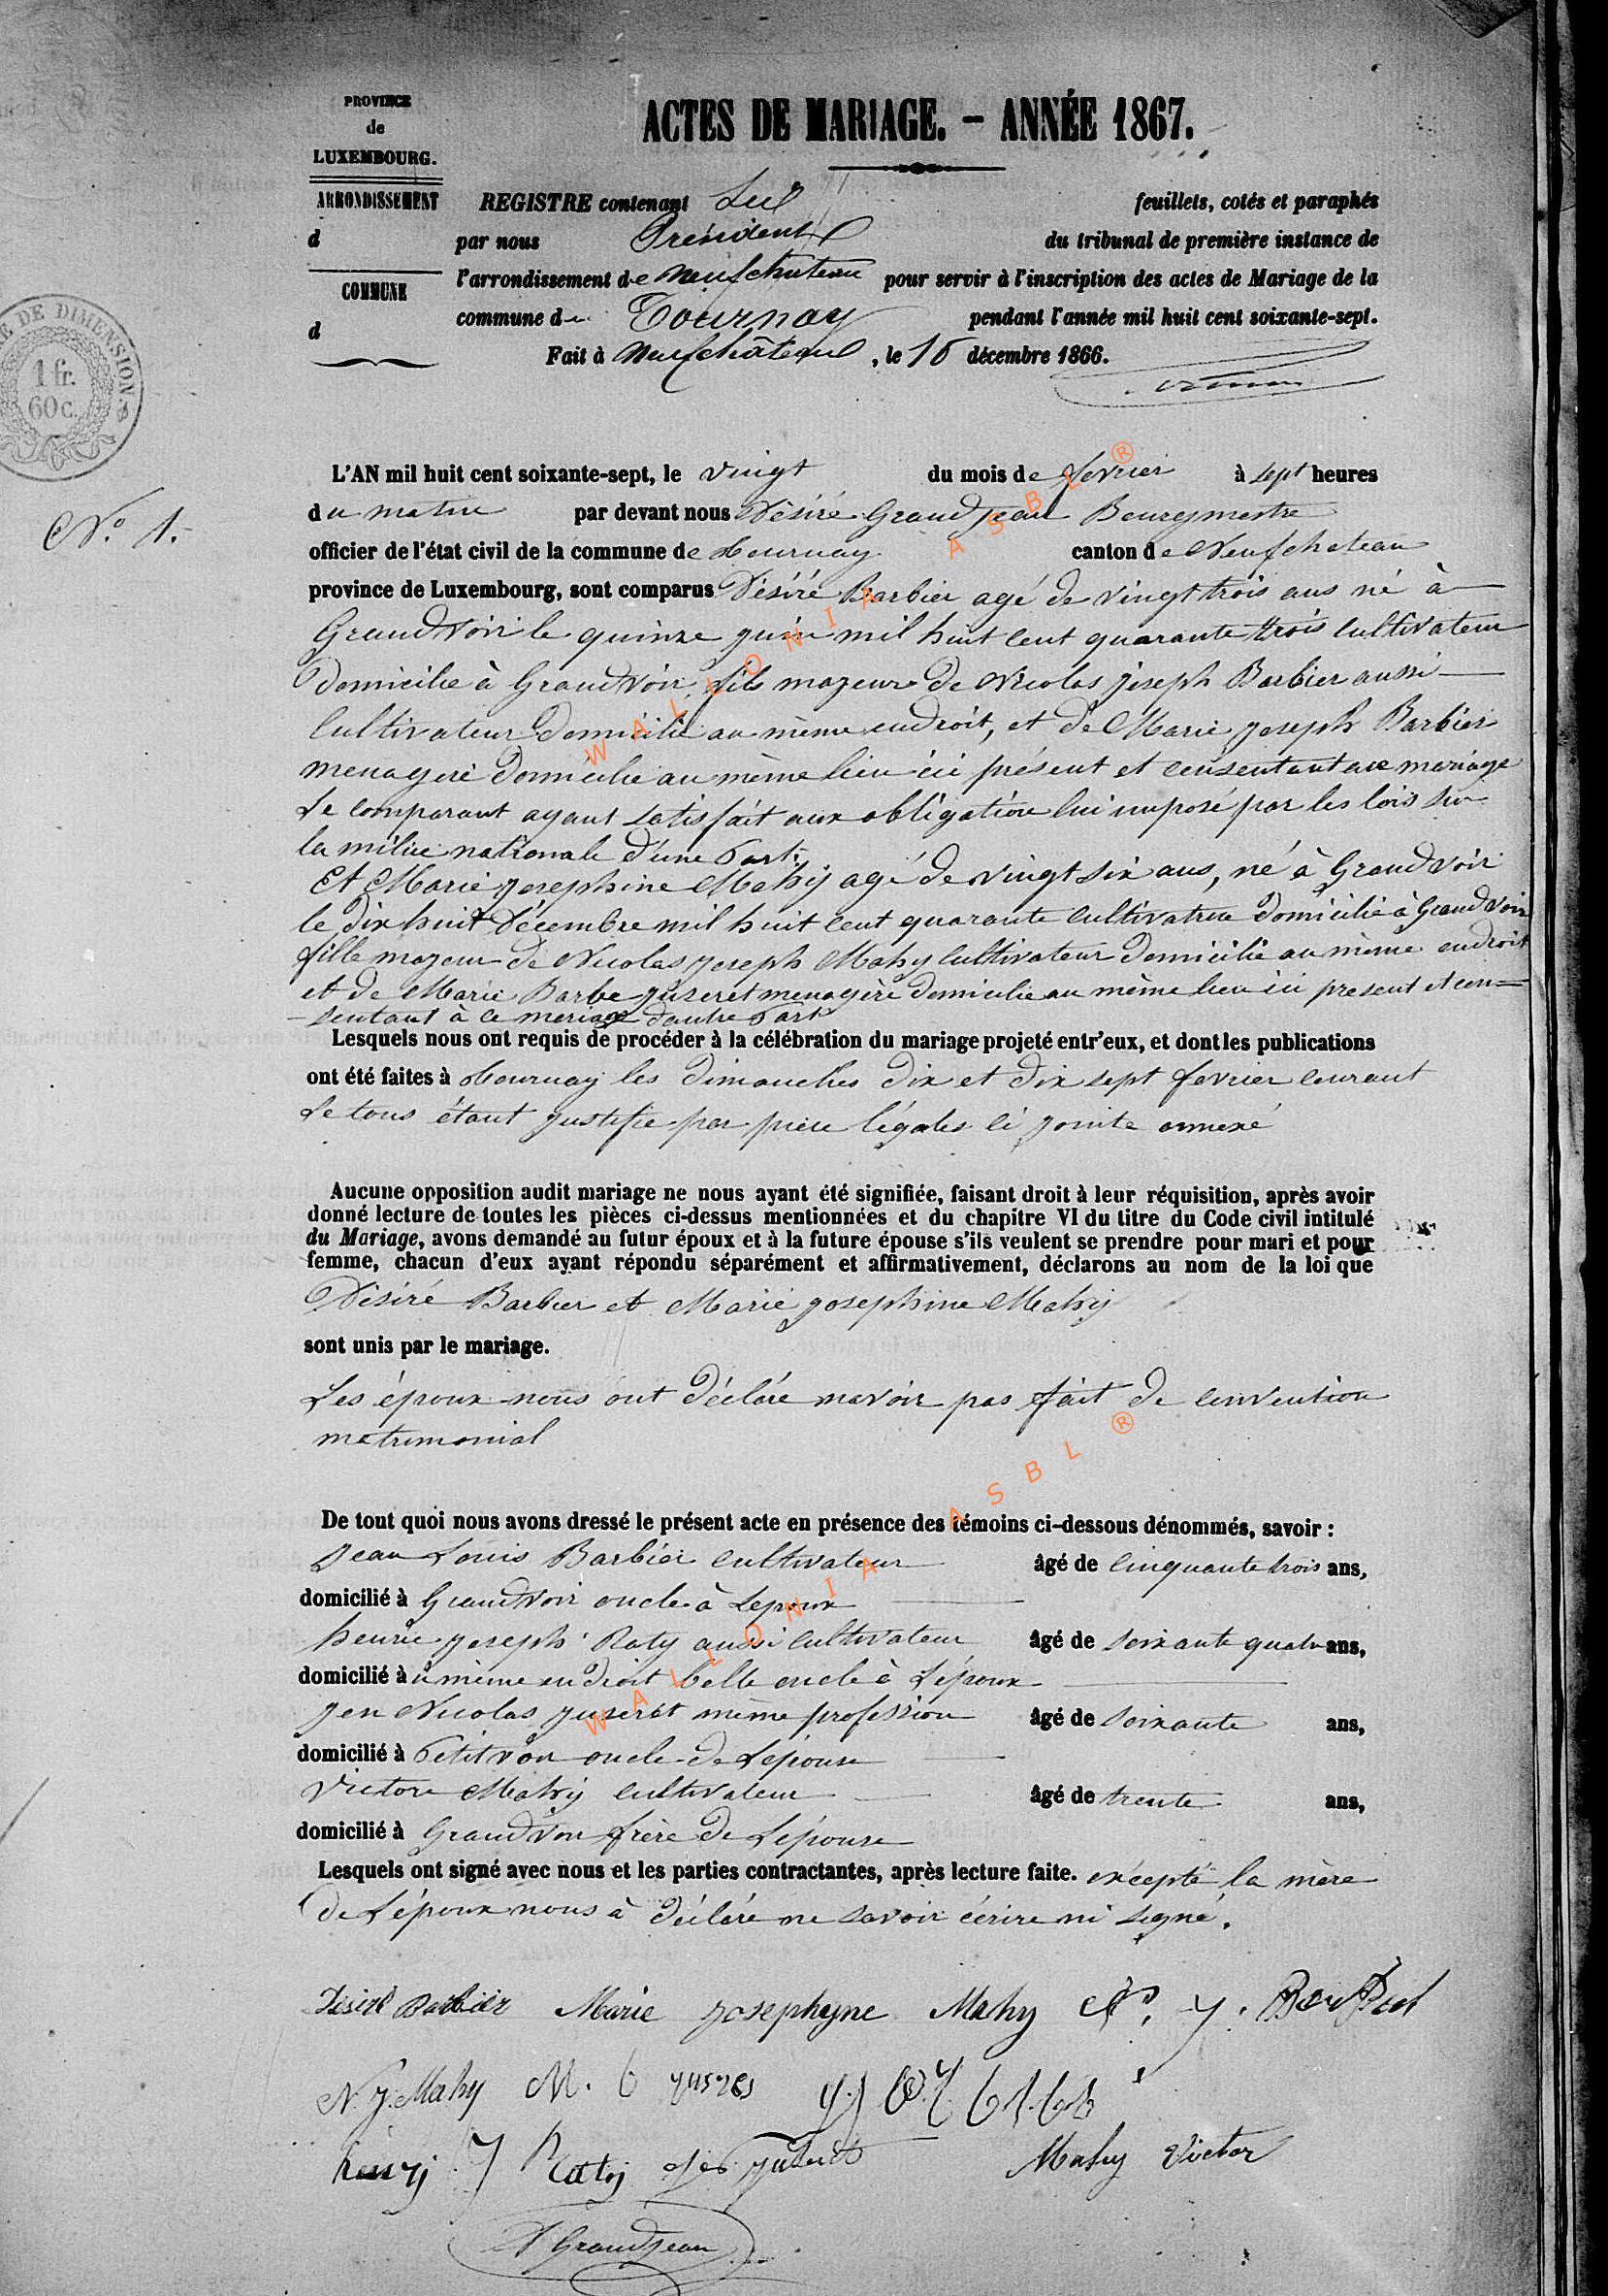 PROVINCE
de
LUXEMBOURG.
ARRONDISSEMENT
d
COMMUNE
d
ACTES DE MARIAGE. - ANNÉE 1867.
REGISTRE contenant feuillets, cotés et paraphés
par nous Président du tribunal de première instance de
l'arrondissement de Neufchateau pour servir à l'inscription des actes de Mariage de la
commune de Tournay pendant l'année mil huit cent soixante-sept.
Fait à Neufchâteau, le 15 décembre 1866.
E DE DIMENSION.
1 fr.
60 c.
No. 1.
L'AN mil huit cent soixante-sept, le vingt du mois de fevrier à sept heures
du matin par devant nous Désiré Grandjean Bourgmestre
officier de l'état civil de la commune de Tournay canton de Neufchateau
province de Luxembourg, sont comparus Désiré Barbier agé de vingt trois ans né à
Grandvoir le quinze juin mil huit cent quarante trois cultivateur
Domicilié à Grandvoir, fils majeur de Nicolas joseph Barbier aussi
cultivateur Domicilié au même endroit, et de Marie joseph Barbier
menagerè domicilié au même lieu ici présent et consentant au mariage
Le comparant ayant satisfait aux obligation lui imposé par les lois sur
la milice nationale d'une Part.
Et Marie josephine Mahy agé de vingt six ans, né à Grandvoir
le dix huit Décembre mil huit cent quarante cultivatrice domicilié à Grandvoir
fille majeur de Nicolas joseph Mahy cultivateur domicilié au même endroit
et de Marie Barbe juseret menagère domicilie au même lieu ici present et con=
=sentant à ce mariage d'autre Part
Lesquels nous ont requis de procéder à la célébration du mariage projeté entr'eux, et dont les publications
ont été faites à Tournay les dimanches dix et dix sept fevrier courant
Le tous étant justifie par pièce légales ci jointe annexé
Aucune opposition audit mariage ne nous ayant été signifiée, faisant droit à leur réquisition, après avoir
donné lecture de toutes les pièces ci-dessus mentionnées et du chapitre VI du titre du Code civil intitulé
du Mariage, avons demandé au futur époux et à la future épouse s'ils veulent se prendre pour mari et pour
femme, chacun d'eux ayant répondu séparément et affirmativement, déclarons au nom de la loi que
Désiré Barbier et Marie josephine Mahy
sont unis par le mariage.
Les époux nous ont déclaré navoir pas fait de convention
matrimonial
De tout quoi nous avons dressé le présent acte en présence des témoins ci-dessous dénommés, savoir :
Jean Louis Barbier cultivateur âgé de cinquante trois ans,
domicilié à Grandvoir oncle à Lepoux
henrie joseph Roty aussi cultivateur âgé de soixante quatre ans,
domicilié à u même endroit belle oncle à Lépoux
Jen Nicolas juseret même profession âgé de soixante ans,
domicilié à Petitvoir oncle de Lépouse
Victore Mahy cultivateur âgé de trente ans,
domicilié à Grandvoir frère de Lépouse
Lesquels ont signé avec nous et les parties contractantes, après lecture faite. excepté la mère
de Lépoux nous à déclaré ne savoir écrire ni signé.
Désiré Barbier Marie josephyne Mahy
N. J. Mahy M. b
henrij J Rotij Mahy Victor
D Grandjean
WALLONIA ASBL ®
WALLONIA ASBL ®